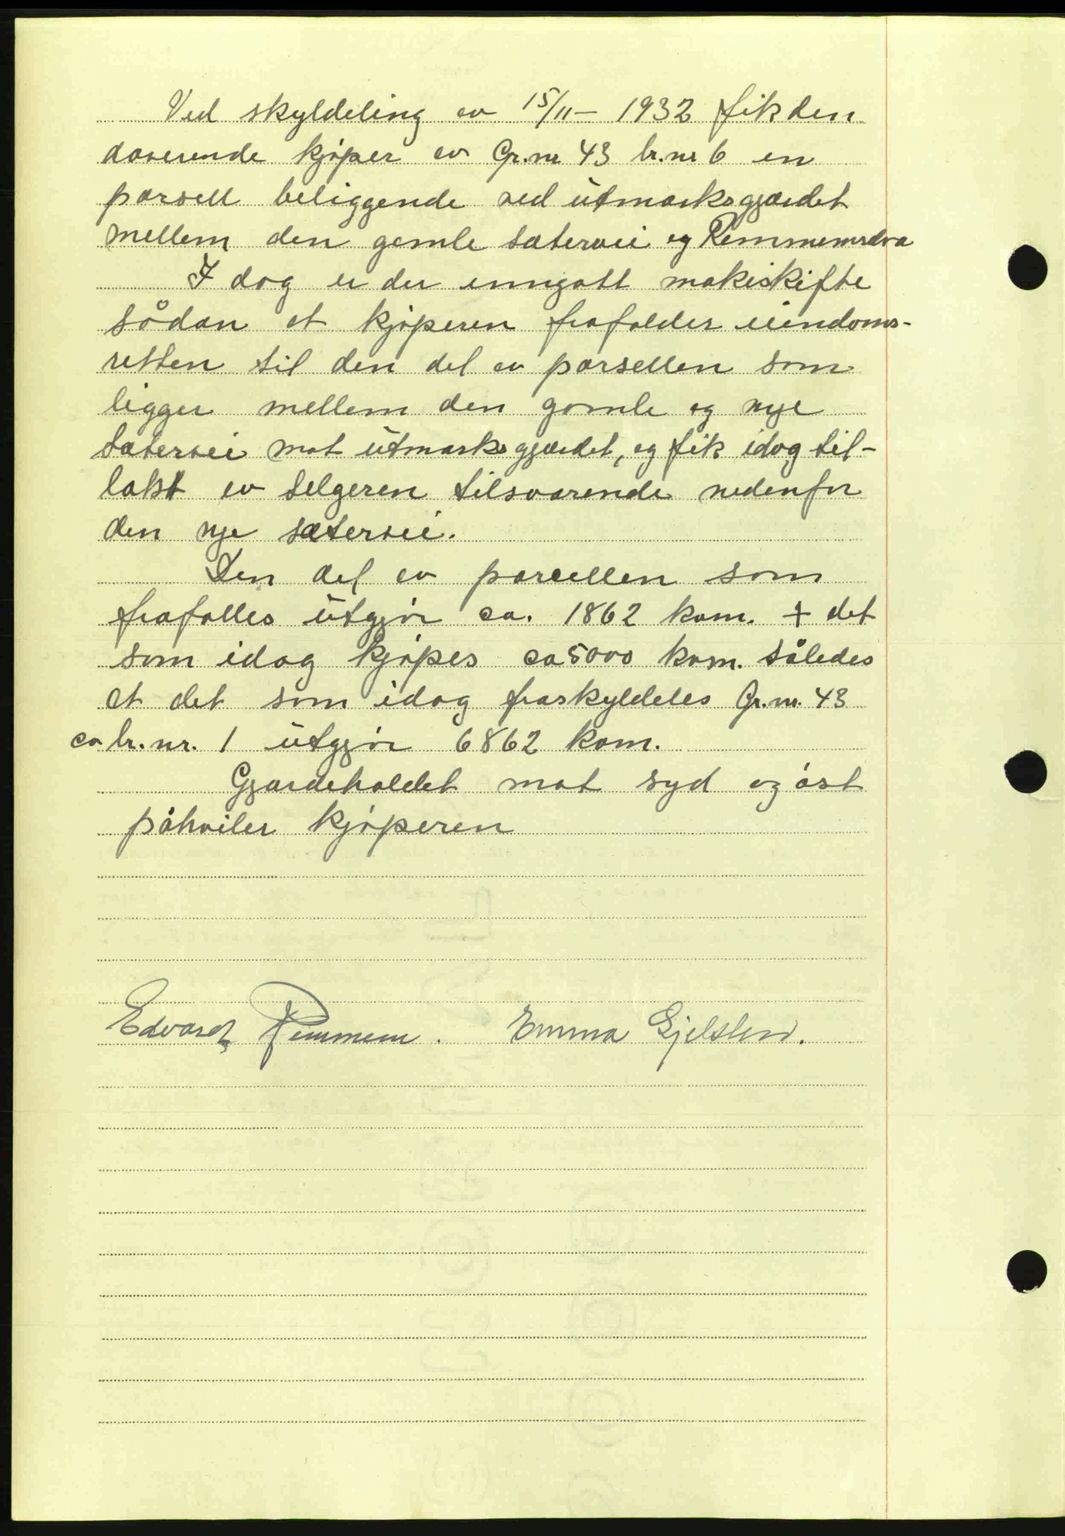 Ved skyldeling av 15/11 - 1932 fik den
daværende kjøper av Gr.nr 43 br.nr 6 en
parsell beliggende ved utmarksgjærdet
mellem den gamle sætervei og Remmemselva
I dag er der inngått makeskifte
sådan at kjøperen frafalder eiendoms-
retten til den del av parsellen som
ligger mellem den gamle og nye
sætervei mot utmarksgjærdet, og fik idag til-
lakt av selgeren tilsvarende nedenfor
den nye sætervei.
Den del av parcellen som
frafalles utgjør ca. 1862 kvm. + det
som idag kjøpes ca 5000 kvm. således
at det som idag fraskyldeles Gr.nr. 43
av br.nr. 1 utgjør 6862 kvm.
Gjærdeholdet mot syd og øst
påhviler kjøperen
Edvard Remmem. Emma Gjelsten.